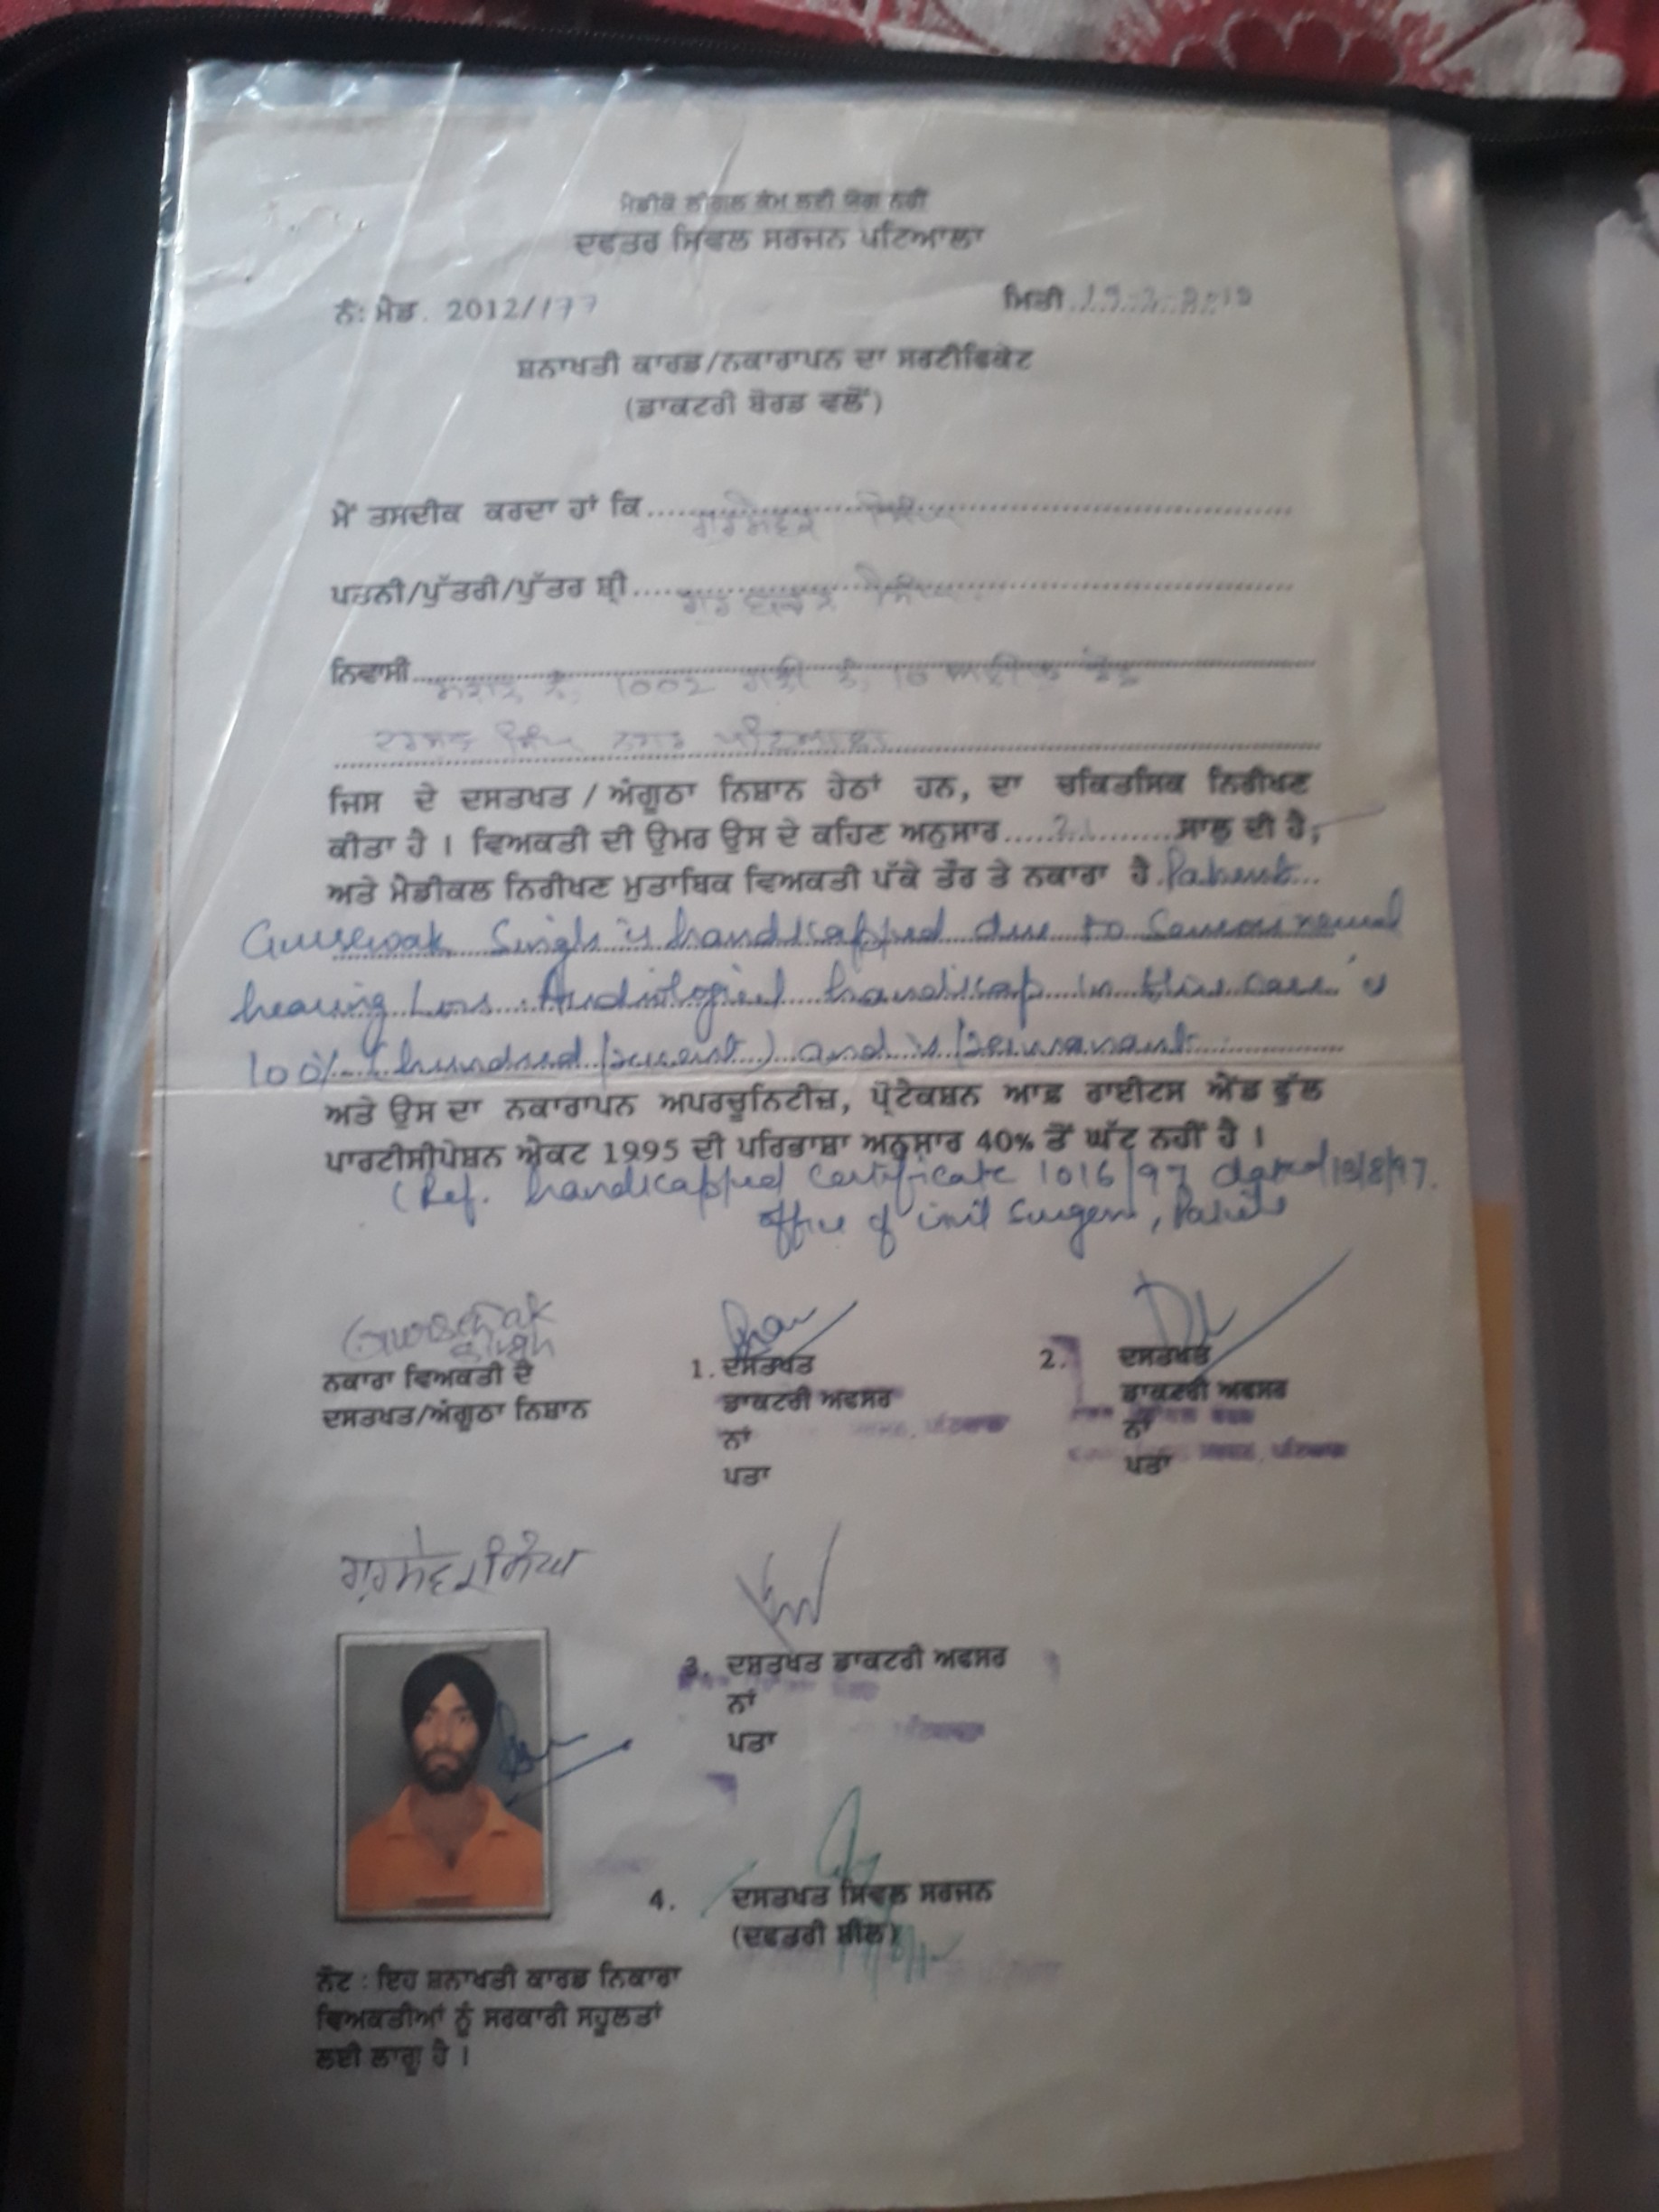 ਮੈਡੀਕੋ ਲੀਗਲ ਕੰਮ ਲਈ ਯੋਗ ਨਹੀਂ
ਦਫਤਰ ਸਿਵਲ ਸਰਜਨ ਪਟਿਆਲਾ
ਨੰ: ਮੈਡ. 2012/177 ਮਿਤੀ
ਸ਼ਨਾਖਤੀ ਕਾਰਡ/ਨਕਾਰਾਪਨ ਦਾ ਸਰਟੀਫਿਕੇਟ
(ਡਾਕਟਰੀ ਬੋਰਡ ਵਲੋਂ)
ਮੈਂ ਤਸਦੀਕ ਕਰਦਾ ਹਾਂ ਕਿ ਗੁਰਸੇਵਕ ਸਿੰਘ
ਪਤਨੀ/ਪੁੱਤਰੀ/ਪੁੱਤਰ ਸ਼੍ਰੀ ਸਿੰਘ
ਨਿਵਾਸੀ ਮਕਾਨ ਨੰ. 1002 ਗਲੀ ਨੰ.
ਸਿੰਘ ਨਗਰ ਪਟਿਆਲਾ
ਜਿਸ ਦੇ ਦਸਤਖਤ / ਅੰਗੂਠਾ ਨਿਸ਼ਾਨ ਹੇਠਾਂ ਹਨ, ਦਾ ਚਕਿਤਸਿਕ ਨਿਰੀਖਣ
ਕੀਤਾ ਹੈ । ਵਿਅਕਤੀ ਦੀ ਉਮਰ ਉਸ ਦੇ ਕਹਿਣ ਅਨੁਸਾਰ....21....ਸਾਲ ਦੀ ਹੈ,
ਅਤੇ ਮੈਡੀਕਲ ਨਿਰੀਖਣ ਮੁਤਾਬਿਕ ਵਿਅਕਤੀ ਪੱਕੇ ਤੌਰ ਤੇ ਨਕਾਰਾ ਹੈ Patient
Gursewak Singh is handicapped due to Sensorineural
hearing Loss. Audiological handicap in this case is
100% (hundred percent) and is permanent.
ਅਤੇ ਉਸ ਦਾ ਨਕਾਰਾਪਨ ਅਪਰਚੂਨਿਟੀਜ਼, ਪ੍ਰੋਟੈਕਸ਼ਨ ਆਫ਼ ਰਾਈਟਸ ਐਂਡ ਫੁੱਲ
ਪਾਰਟੀਸੀਪੇਸ਼ਨ ਐਕਟ 1995 ਦੀ ਪਰਿਭਾਸ਼ਾ ਅਨੁਸਾਰ 40% ਤੋਂ ਘੱਟ ਨਹੀਂ ਹੈ ।
(Ref. handicapped Certificate 1016/97 dated 13/8/97.
office of Civil Surgeon, Patiala
Gursewak
Singh
ਨਕਾਰਾ ਵਿਅਕਤੀ ਦੇ
ਦਸਤਖਤ/ਅੰਗੂਠਾ ਨਿਸ਼ਾਨ
1. ਦਸਤਖਤ
ਡਾਕਟਰੀ ਅਫਸਰ
ਨਾਂ
ਪਤਾ
2. ਦਸਤਖਤ
ਡਾਕਟਰੀ ਅਫਸਰ
ਨਾਂ
ਪਤਾ
ਗੁਰਸੇਵਕ ਸਿੰਘ
3. ਦਸਤਖਤ ਡਾਕਟਰੀ ਅਫਸਰ
ਨਾਂ
ਪਤਾ
4. ਦਸਤਖਤ ਸਿਵਲ ਸਰਜਨ
(ਦਫਤਰੀ ਸ਼ੀਲ)
ਨੋਟ : ਇਹ ਸ਼ਨਾਖਤੀ ਕਾਰਡ ਨਿਕਾਰਾ
ਵਿਅਕਤੀਆਂ ਨੂੰ ਸਰਕਾਰੀ ਸਹੂਲਤਾਂ
ਲਈ ਲਾਗੂ ਹੈ ।